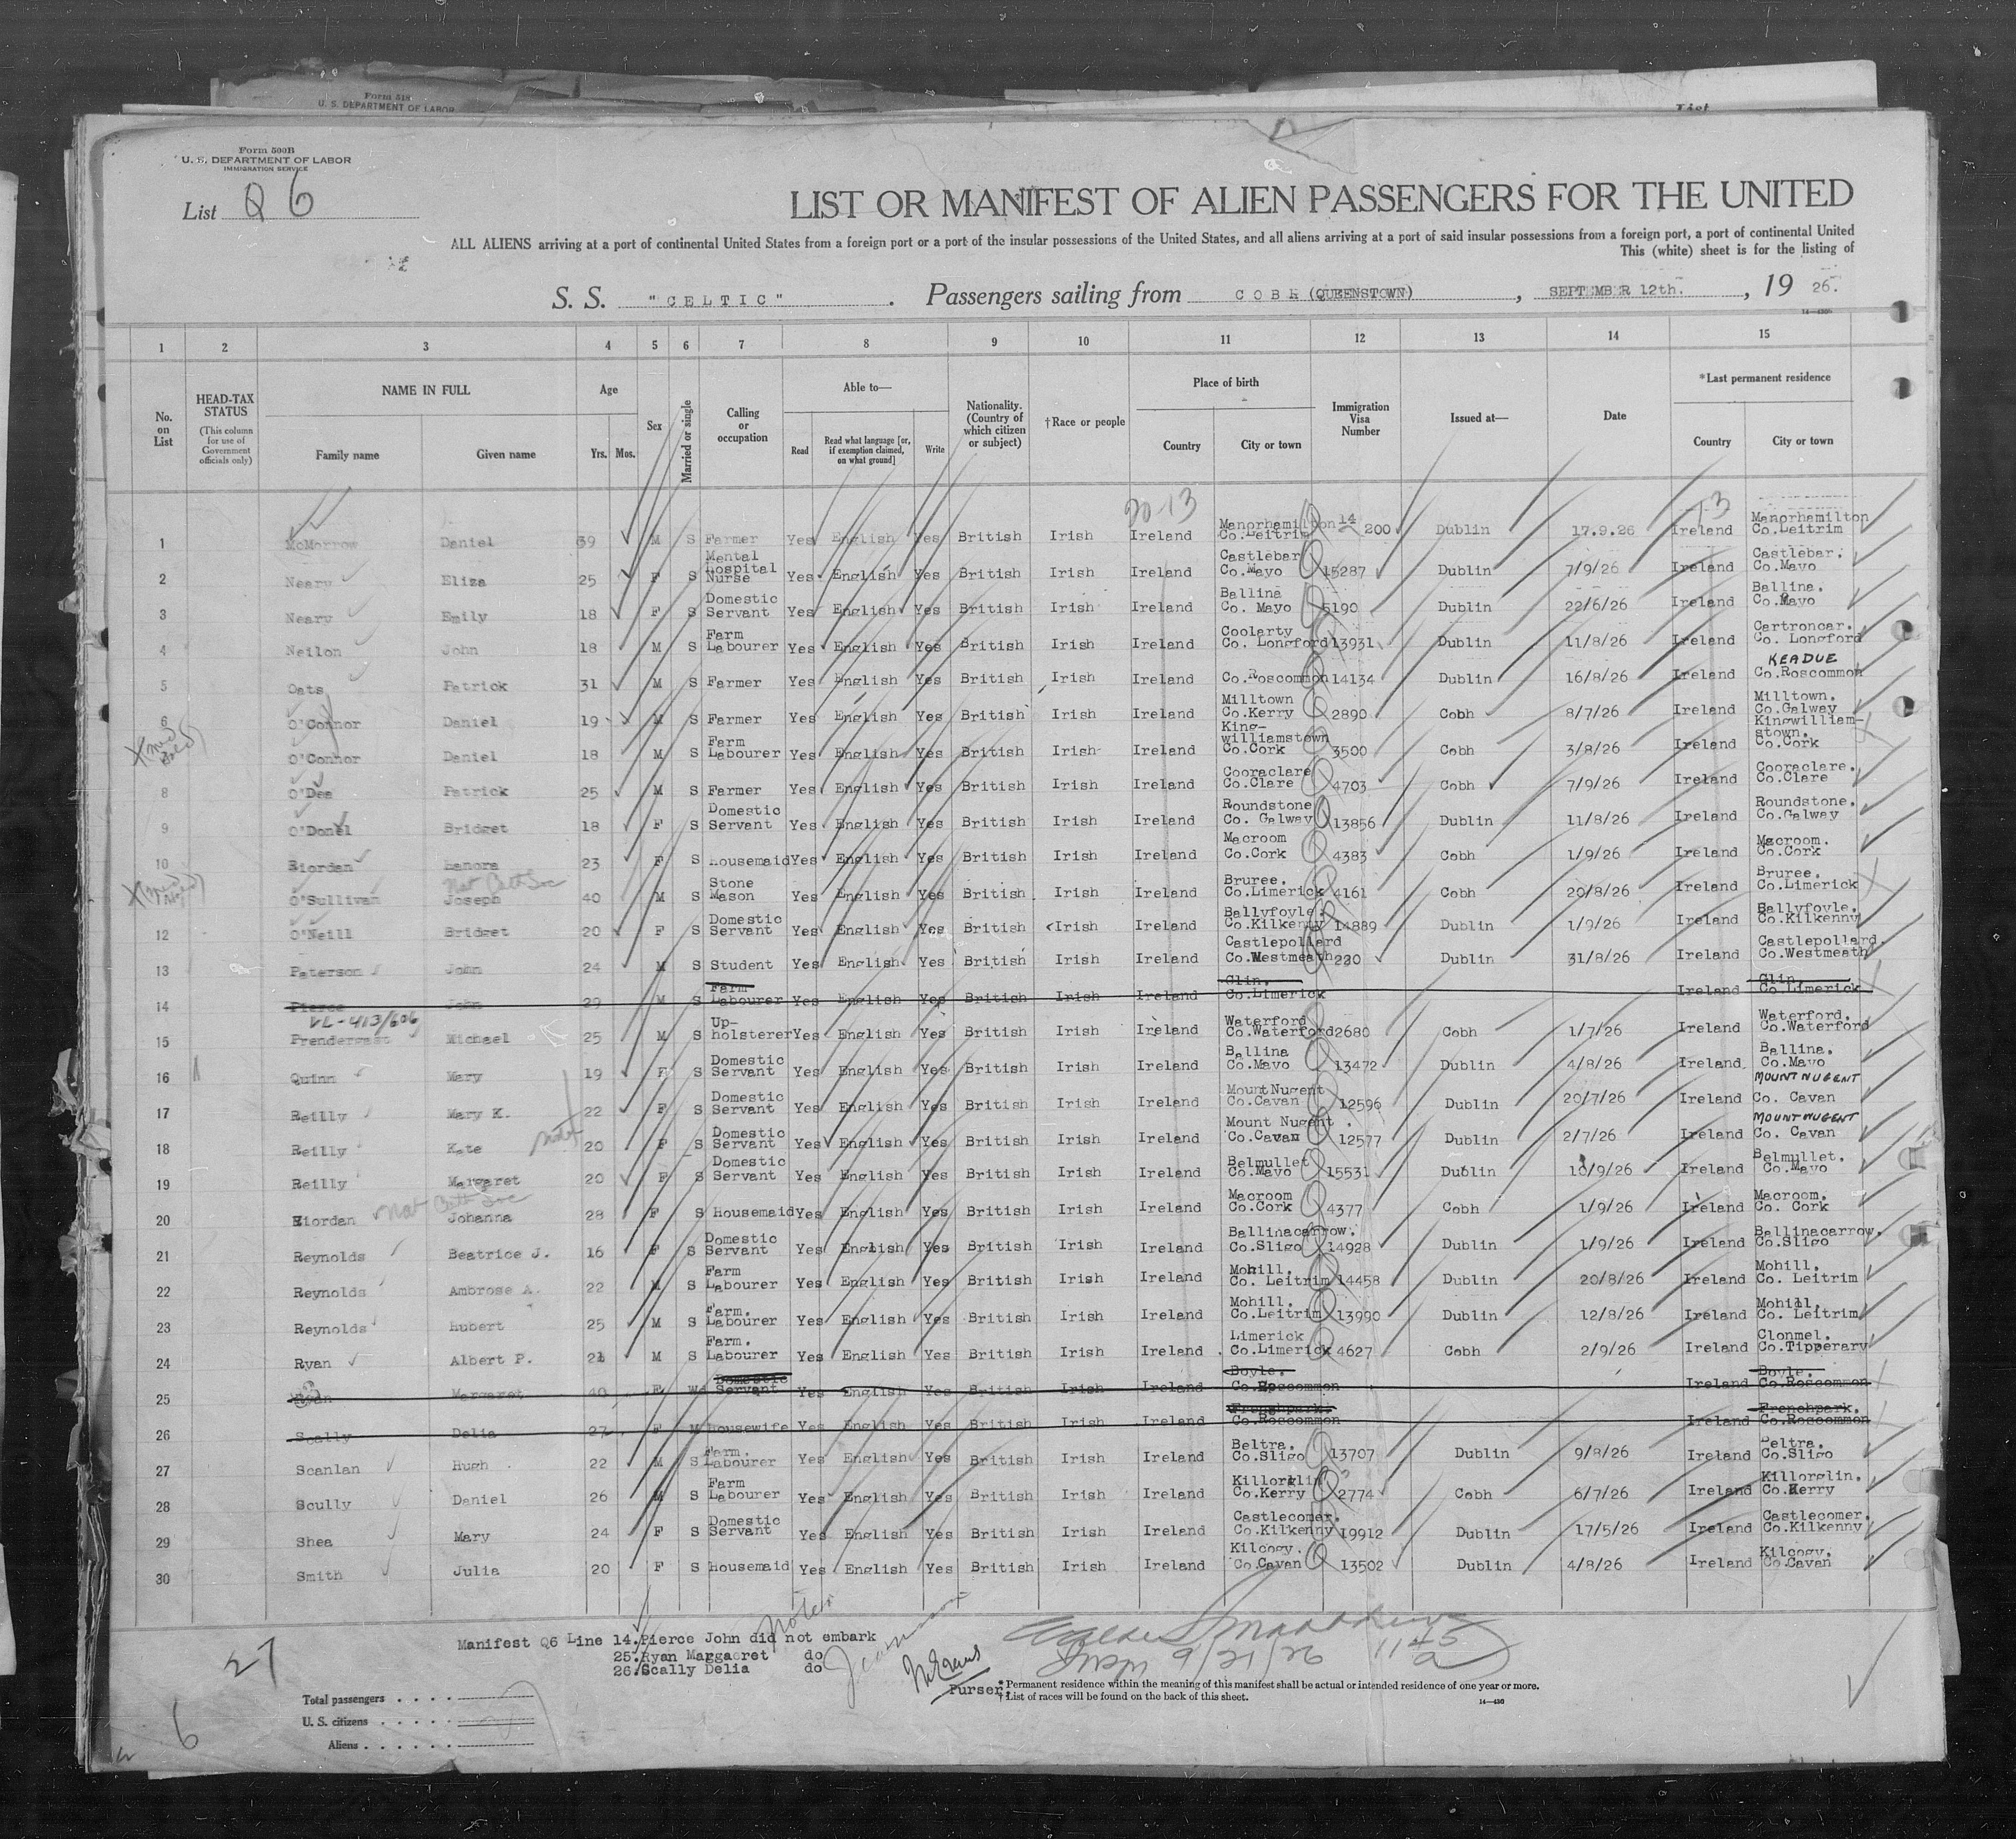 Form 518
U. S. DEPARTMENT OF LABOR
List
Form 500B
U. S. DEPARTMENT OF LABOR
IMMIGRATION SERVICE
List Q 6
LIST OR MANIFEST OF ALIEN PASSENGERS FOR THE UNITED
ALL ALIENS arriving at a port of continental United States from a foreign port or a port of the insular possessions of the United States, and all aliens arriving at a port of said insular possessions from a foreign port, a port of continental United
This (white) sheet is for the listing of
S. S. "CELTIC" . Passengers sailing from COBH (QUEENSTOWN) , SEPTEMBER 12th. , 19 26.
14—430
1 2 3 4 5 6 7 8 9 10 11 12 13 14 15
No. on List
HEAD-TAX STATUS (This column for use of Government officials only)
NAME IN FULL Family name Given name
Age Yrs. Mos.
Sex
Married or single
Calling or occupation
Able to— Read Read what language [or, if exemption claimed, on what ground] Write
Nationality. (Country of which citizen or subject)
†Race or people
Place of birth Country City or town
Immigration Visa Number
Issued at—
Date
*Last permanent residence Country City or town
20-13
1 McMorrow Daniel 39 M S Farmer Yes English Yes British Irish Ireland Manorhamilton Co.Leitrim 14 200 Dublin 17.9.26 Ireland Manorhamilton Co.Leitrim
2 Neary Eliza 25 F S Mental Hospital Nurse Yes English Yes British Irish Ireland Castlebar Co.Mayo 15287 Dublin 7/9/26 Ireland Castlebar. Co.Mayo
3 Neary Emily 18 F S Domestic Servant Yes English Yes British Irish Ireland Ballina Co. Mayo 5190 Dublin 22/6/26 Ireland Ballina. Co.Mayo
4 Neilon John 18 M S Farm Labourer Yes English Yes British Irish Ireland Coolarty Co. Longford 13931 Dublin 11/8/26 Ireland Cartroncar. Co. Longford
5 Oats Patrick 31 M S Farmer Yes English Yes British Irish Ireland Co.Roscommon 14134 Dublin 16/8/26 Ireland KEADUE Co.Roscommon
6 O'Connor Daniel 19 M S Farmer Yes English Yes British Irish Ireland Milltown Co.Kerry 2890 Cobh 8/7/26 Ireland Milltown. Co.Galway
O'Connor Daniel 18 M S Farm Labourer Yes English Yes British Irish Ireland King-williamstown Co.Cork 3500 Cobh 3/8/26 Ireland Kingwilliam-stown. Co.Cork
8 O'Dea Patrick 25 M S Farmer Yes English Yes British Irish Ireland Cooraclare Co.Clare 4703 Cobh 7/9/26 Ireland Cooraclare. Co.Clare
9 O'Donel Bridget 18 F S Domestic Servant Yes English Yes British Irish Ireland Roundstone Co. Galway 13856 Dublin 11/8/26 Ireland Roundstone. Co.Galway
10 Riordan Hanora 23 F S Housemaid Yes English Yes British Irish Ireland Macroom Co.Cork 4383 Cobh 1/9/26 Ireland Macroom. Co.Cork
O'Sullivan Joseph 40 M S Stone Mason Yes English Yes British Irish Ireland Bruree. Co.Limerick 4161 Cobh 20/8/26 Ireland Bruree. Co.Limerick
12 O'Neill Bridget 20 F S Domestic Servant Yes English Yes British Irish Ireland Ballyfoyle. Co.Kilkenny 14889 Dublin 1/9/26 Ireland Ballyfoyle. Co.Kilkenny
13 Paterson John 24 M S Student Yes English Yes British Irish Ireland Castlepollard Co.Westmeath 220 Dublin 31/8/26 Ireland Castlepollard. Co.Westmeath
14 Pierce John 29 M S Farm Labourer Yes English Yes British Irish Ireland Glin. Co.Limerick Ireland Glin. Co.Limerick
VL-413/606
15 Prendergast Michael 25 M S Up-holsterer Yes English Yes British Irish Ireland Waterford Co.Waterford 2680 Cobh 1/7/26 Ireland Waterford. Co.Waterford
16 Quinn Mary 19 F S Domestic Servant Yes English Yes British Irish Ireland Ballina Co.Mayo 13472 Dublin 4/8/26 Ireland Ballina. Co.Mayo
17 Reilly Mary K. 22 F S Domestic Servant Yes English Yes British Irish Ireland Mount Nugent Co.Cavan 12596 Dublin 20/7/26 Ireland MOUNT NUGENT Co. Cavan
18 Reilly Kate 20 F S Domestic Servant Yes English Yes British Irish Ireland Mount Nugent. Co.Cavan 12577 Dublin 2/7/26 Ireland MOUNT NUGENT Co. Cavan
19 Reilly Margaret 20 F S Domestic Servant Yes English Yes British Irish Ireland Belmullet Co.Mayo 15531 Dublin 10/9/26 Ireland Belmullet. Co.Mayo
20 Riordan Johanna 28 F S Housemaid Yes English Yes British Irish Ireland Macroom Co.Cork 4377 Cobh 1/9/26 Ireland Macroom. Co. Cork
21 Reynolds Beatrice J. 16 F S Domestic Servant Yes English Yes British Irish Ireland Ballinacarrow. Co.Sligo 14928 Dublin 1/9/26 Ireland Ballinacarrow. Co.Sligo
22 Reynolds Ambrose A. 22 M S Farm Labourer Yes English Yes British Irish Ireland Mohill. Co. Leitrim 14458 Dublin 20/8/26 Ireland Mohill. Co. Leitrim
23 Reynolds Hubert 25 M S Farm. Labourer Yes English Yes British Irish Ireland Mohill. Co.Leitrim 13990 Dublin 12/8/26 Ireland Mohill. Co. Leitrim
24 Ryan Albert P. 21 M S Farm. Labourer Yes English Yes British Irish Ireland Limerick Co.Limerick 4627 Cobh 2/9/26 Ireland Clonmel. Co.Tipperary
25 Ryan Margaret 40 F Wd Domestic Servant Yes English Yes British Irish Ireland Boyle. Co.Roscommon Ireland Boyle. Co.Roscommon
26 Scally Delia 27 F M Housewife Yes English Yes British Irish Ireland Frenchpark. Co.Roscommon Ireland Frenchpark. Co.Roscommon
27 Scanlan Hugh 22 M S Farm. Labourer Yes English Yes British Irish Ireland Beltra. Co.Sligo 13707 Dublin 9/8/26 Ireland Beltra. Co.Sligo
28 Scully Daniel 26 M S Farm Labourer Yes English Yes British Irish Ireland Killorglin Co.Kerry 2774 Cobh 6/7/26 Ireland Killorglin. Co.Kerry
29 Shea Mary 24 F S Domestic Servant Yes English Yes British Irish Ireland Castlecomer. Co.Kilkenny 19912 Dublin 17/5/26 Ireland Castlecomer. Co.Kilkenny
30 Smith Julia 20 F S Housemaid Yes English Yes British Irish Ireland Kilcogy. Co.Cavan 13502 Dublin 4/8/26 Ireland Kilcogy. Co.Cavan
Manifest Q6 Line 14.Pierce John did not embark
25.Ryan Margaret do
26.Scally Delia do
27
9/21/26
Purser.
* Permanent residence within the meaning of this manifest shall be actual or intended residence of one year or more.
† List of races will be found on the back of this sheet.
14—430
Total passengers
U. S. citizens
Aliens
6